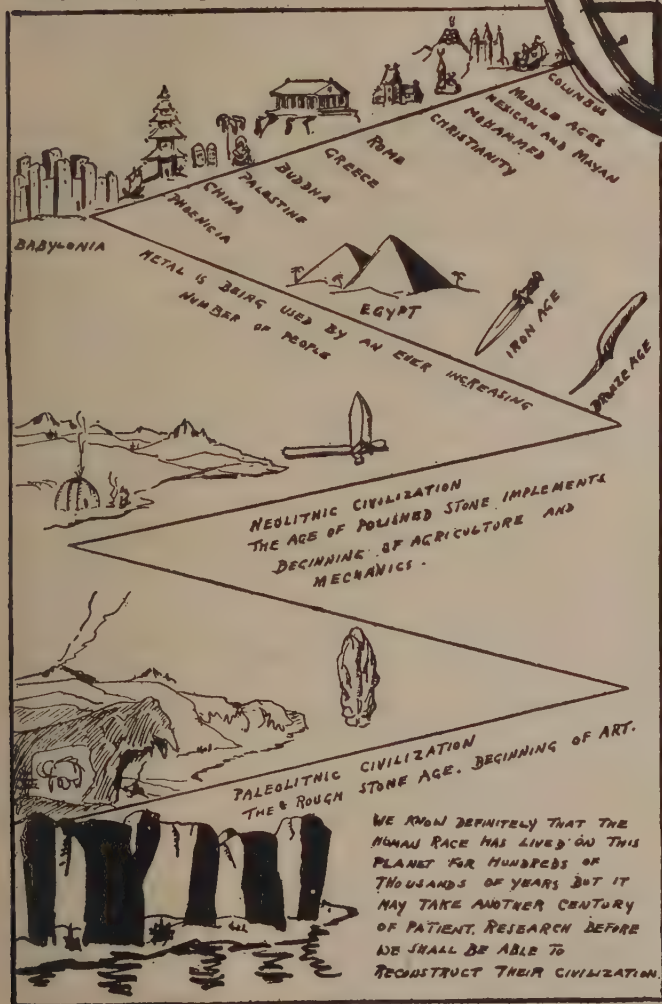 COLUMBUS
MIDDLE AGES
MEXICAN AND MAYAN
MOHAMMED
CHRISTIANITY
ROME
GREECE
BUDDHA
PALESTINE
CHINA
PHOENICIA
BABYLONIA
METAL IS BEING USED BY AN EVER INCREASING
NUMBER OF PEOPLE
EGYPT
IRON AGE
BRONZE AGE
NEOLITHIC CIVILIZATION
THE AGE OF POLISHED STONE IMPLEMENTS
BEGINNING OF AGRICULTURE AND
MECHANICS.
PALEOLITHIC CIVILIZATION
THE ROUGH STONE AGE. BEGINNING OF ART.
WE KNOW DEFINITELY THAT THE
HUMAN RACE HAS LIVED ON THIS
PLANET FOR HUNDREDS OF
THOUSANDS OF YEARS BUT IT
MAY TAKE ANOTHER CENTURY
OF PATIENT RESEARCH BEFORE
WE SHALL BE ABLE TO
RECONSTRUCT THEIR CIVILIZATION.